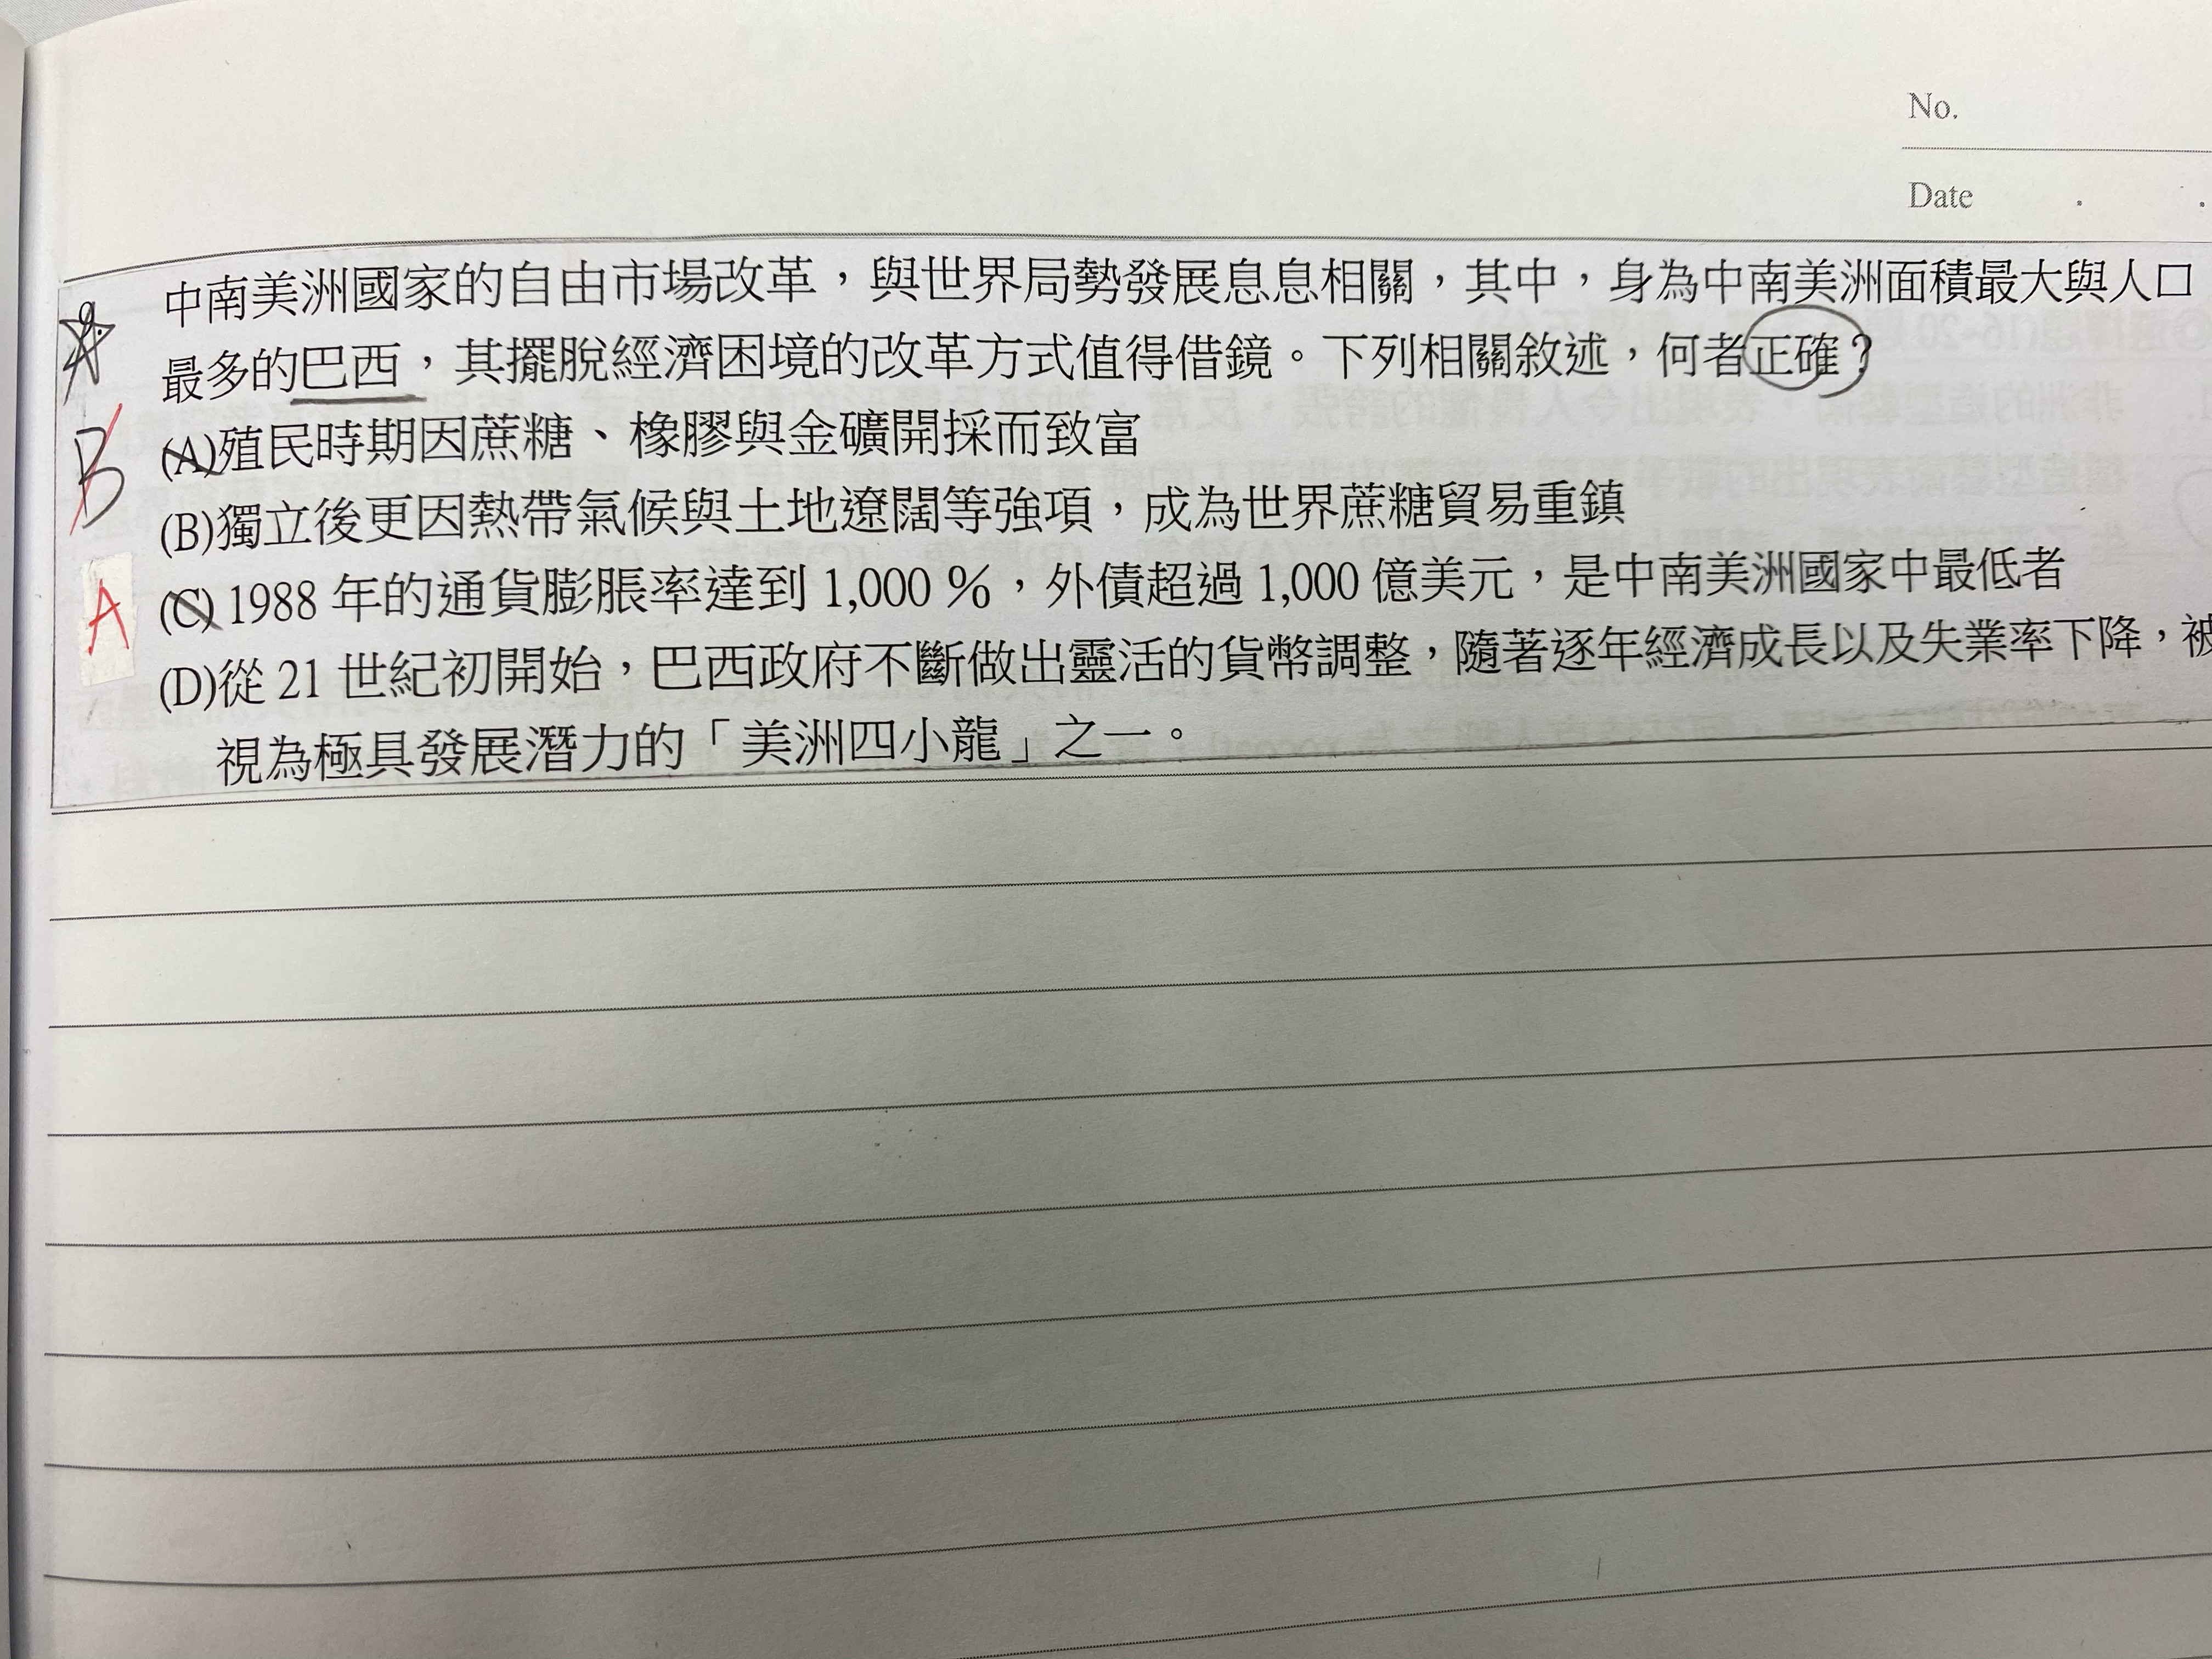 No.
Date . .
中南美洲國家的自由市場改革，與世界局勢發展息息相關，其中，身為中南美洲面積最大與人口
最多的巴西，其擺脫經濟困境的改革方式值得借鏡。下列相關敘述，何者正確？
B
(A)殖民時期因蔗糖、橡膠與金礦開採而致富
(B)獨立後更因熱帶氣候與土地遼闊等強項，成為世界蔗糖貿易重鎮
A
(C) 1988 年的通貨膨脹率達到 1,000 %，外債超過 1,000 億美元，是中南美洲國家中最低者
(D)從 21 世紀初開始，巴西政府不斷做出靈活的貨幣調整，隨著逐年經濟成長以及失業率下降，被
視為極具發展潛力的「美洲四小龍」之一。